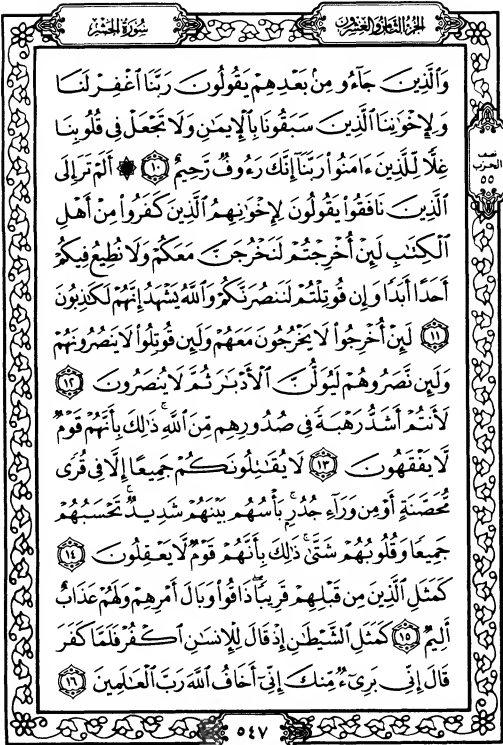 سُورَةُ الحَشْرِ
الجُزْءُ الثَّامِنُ وَالعِشْرُونَ
وَٱلَّذِينَ جَآءُو مِنۢ بَعْدِهِمْ يَقُولُونَ رَبَّنَا ٱغْفِرْ لَنَا
وَلِإِخْوَٰنِنَا ٱلَّذِينَ سَبَقُونَا بِٱلْإِيمَٰنِ وَلَا تَجْعَلْ فِى قُلُوبِنَا
غِلًّا لِّلَّذِينَ ءَامَنُوا۟ رَبَّنَآ إِنَّكَ رَءُوفٌ رَّحِيمٌ ١٠ ۞ أَلَمْ تَرَ إِلَى
ٱلَّذِينَ نَافَقُوا۟ يَقُولُونَ لِإِخْوَٰنِهِمُ ٱلَّذِينَ كَفَرُوا۟ مِنْ أَهْلِ
ٱلْكِتَٰبِ لَئِنْ أُخْرِجْتُمْ لَنَخْرُجَنَّ مَعَكُمْ وَلَا نُطِيعُ فِيكُمْ
أَحَدًا أَبَدًا وَإِن قُوتِلْتُمْ لَنَنصُرَنَّكُمْ وَٱللَّهُ يَشْهَدُ إِنَّهُمْ لَكَٰذِبُونَ
١١ لَئِنْ أُخْرِجُوا۟ لَا يَخْرُجُونَ مَعَهُمْ وَلَئِن قُوتِلُوا۟ لَا يَنصُرُونَهُمْ
وَلَئِن نَّصَرُوهُمْ لَيُوَلُّنَّ ٱلْأَدْبَٰرَ ثُمَّ لَا يُنصَرُونَ ١٢
لَأَنتُمْ أَشَدُّ رَهْبَةً فِى صُدُورِهِم مِّنَ ٱللَّهِ ۚ ذَٰلِكَ بِأَنَّهُمْ قَوْمٌ
لَّا يَفْقَهُونَ ١٣ لَا يُقَٰتِلُونَكُمْ جَمِيعًا إِلَّا فِى قُرًى
مُّحَصَّنَةٍ أَوْ مِن وَرَآءِ جُدُرٍۭ ۚ بَأْسُهُم بَيْنَهُمْ شَدِيدٌ ۚ تَحْسَبُهُمْ
جَمِيعًا وَقُلُوبُهُمْ شَتَّىٰ ۚ ذَٰلِكَ بِأَنَّهُمْ قَوْمٌ لَّا يَعْقِلُونَ ١٤
كَمَثَلِ ٱلَّذِينَ مِن قَبْلِهِمْ قَرِيبًا ۖ ذَاقُوا۟ وَبَالَ أَمْرِهِمْ وَلَهُمْ عَذَابٌ
أَلِيمٌ ١٥ كَمَثَلِ ٱلشَّيْطَٰنِ إِذْ قَالَ لِلْإِنسَٰنِ ٱكْفُرْ فَلَمَّا كَفَرَ
قَالَ إِنِّى بَرِىٓءٌ مِّنكَ إِنِّىٓ أَخَافُ ٱللَّهَ رَبَّ ٱلْعَٰلَمِينَ ١٦
نصف
الحزب
٥٥
٥٤٧